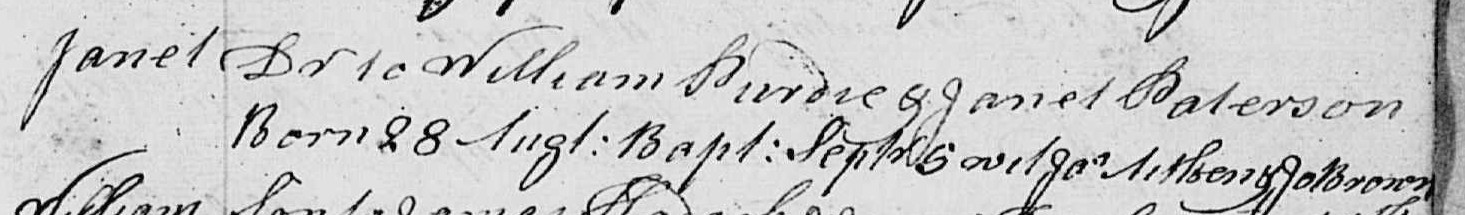 Janet Dr to William Purdie & Janet Paterson
Born 28 Augt: Bapt: Septr 5 wit Jas Aitken & Jo Brown
William Son to James